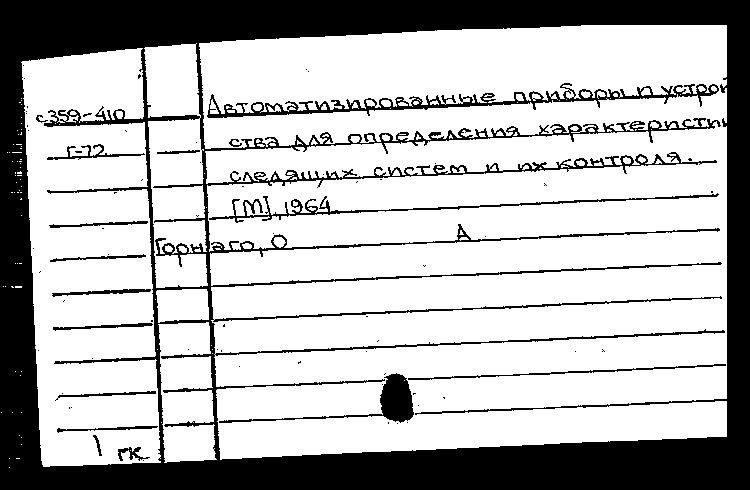 с359-410 Автоматизированные приборы и устрой
Г-72 ства для определения характеристи
следящих систем и их контроля.
[М], 1964
Горнаго, О А
1 гк